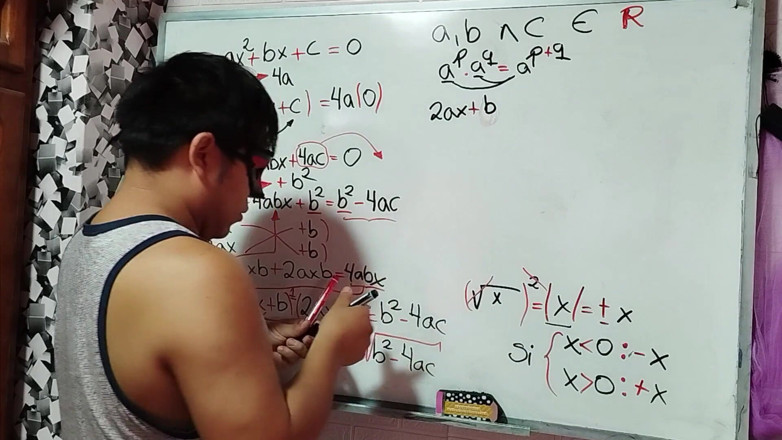 ax² + bx + c = 0
4a
+ c) = 4a(0)
bx + 4ac = 0
+ b²
4abx + b² = b² - 4ac
+b)
ax +b)
xb + 2axb = 4abx
x + b)(2 = b² - 4ac
b² - 4ac
a, b ∧ C ∈ R
a^p · a^q = a^(p+q)
2ax + b
(√x)² = |x| = ± x
Si { x < 0 : - x
x > 0 : + x